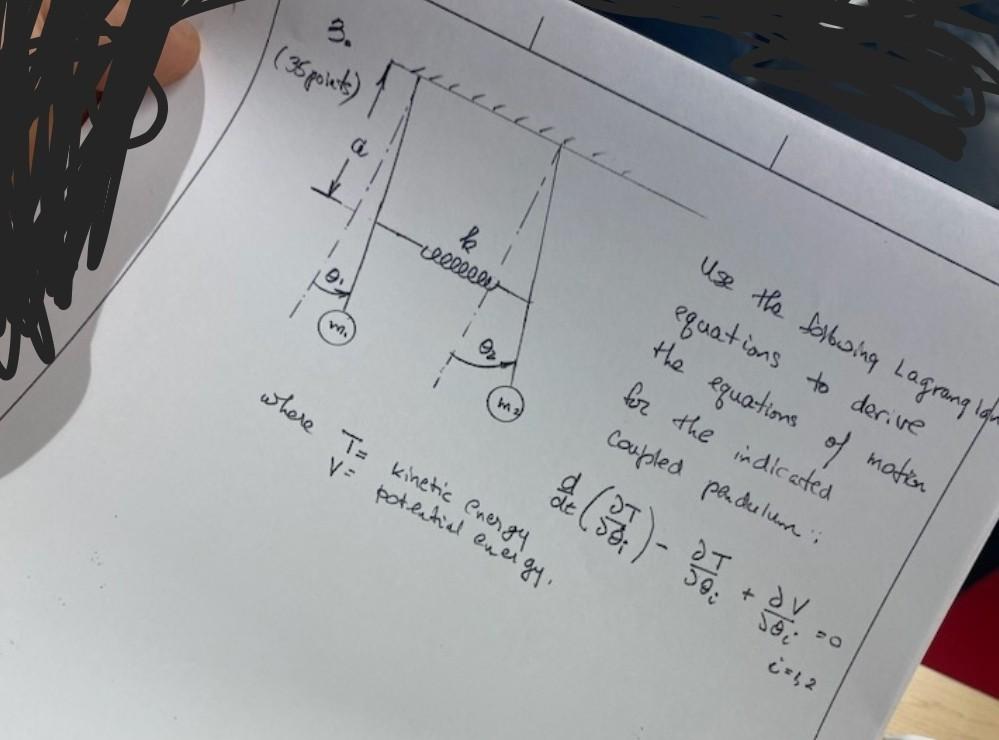 3.
(35 points)
a
k
θ₁
m₁
θ₂
m₂
Use the following Lagrangian
equations to derive
the equations of motion
for the indicated
coupled pendulum:
d/dt (∂T/∂θ̇ᵢ) - ∂T/∂θᵢ + ∂V/∂θᵢ = 0
i=1,2
where T= kinetic energy
V= potential energy.